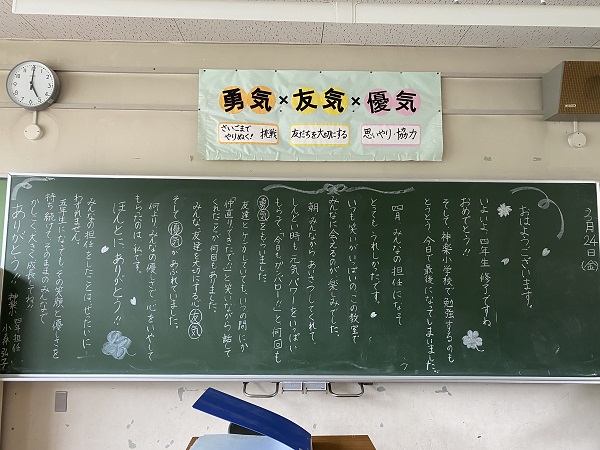 勇気×友気×優気
さいごまで
やりぬく！ 挑戦
友だちを大切にする
思いやり・協力
3月24日(金)
おはようございます。
いよいよ、四年生 修了ですね
おめでとう!!
そして、神楽小学校で勉強するのも
とうとう、今日で最後になってしまいました。
四月 みんなの担任になって
とっても うれしかったです。
いつも笑いがいっぱいの この教室で
みんなに会えるのが 楽しみでした。
朝、みんなから あいさつしてくれて、
しんどい時も 元気パワーをいっぱい
もらって、「今日も がんばろー」と 何回も
勇気をもらいました。
友達とケンカしていても、いつの間にか
「仲直りできたで〜」と 笑いながら 話して
くれたこと、何回もありました。
みんな、友達を大切にする心 友気
そして 優気が あふれていました。
何よりみんなの優しさで 心をいやして
もらったのは、私です。
ほんとに ありがとう!!
みんなの担任をしたことは、ぜったいに
わすれません。
五年生になっても、その笑顔と優しさを
持ち続けて、そのままのみんなで
かしこく 大きく 成長してね!!
ありがとう!! 神楽 四年担任